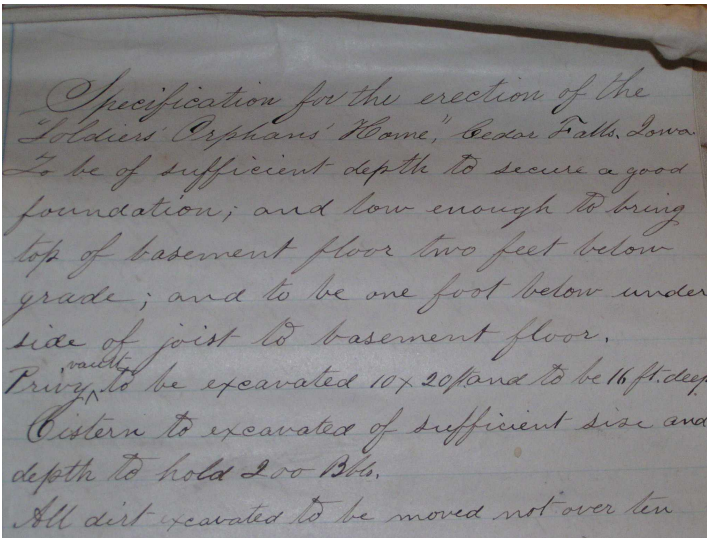 Specification for the erection of the
"Soldiers' Orphans' Home", Cedar Falls. Iowa
To be of sufficient depth to secure a good
foundation; and low enough to bring
top of basement floor two feet below
grade; and to be one foot below under
side of joist to basement floor.
Privy vault to be excavated 10 x 20 ft and to be 16 ft. deep
Cistern to excavated of sufficient size and
depth to hold 200 Bbls.
All dirt excavated to be moved not over ten